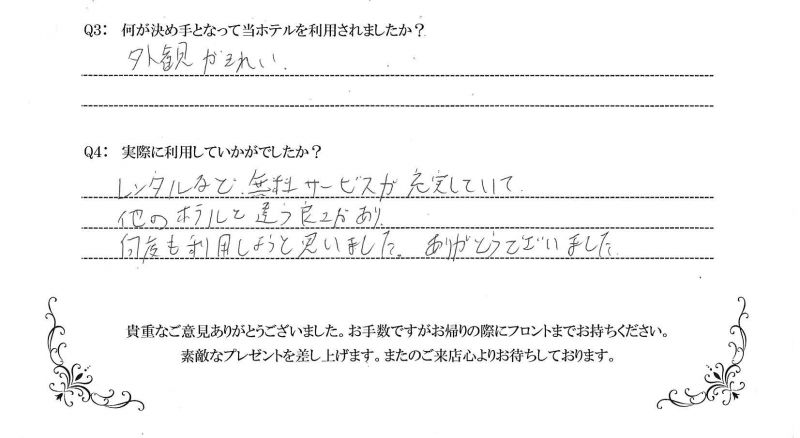 Q3: 何が決め手となって当ホテルを利用されましたか？
外観がきれい.
Q4: 実際に利用していかがでしたか？
レンタルなど、無料サービスが充実していて、
他のホテルと違う良さがあり、
何度も利用しようと思いました。ありがとうございました
貴重なご意見ありがとうございました。お手数ですがお帰りの際にフロントまでお持ちください。
素敵なプレゼントを差し上げます。またのご来店心よりお待ちしております。